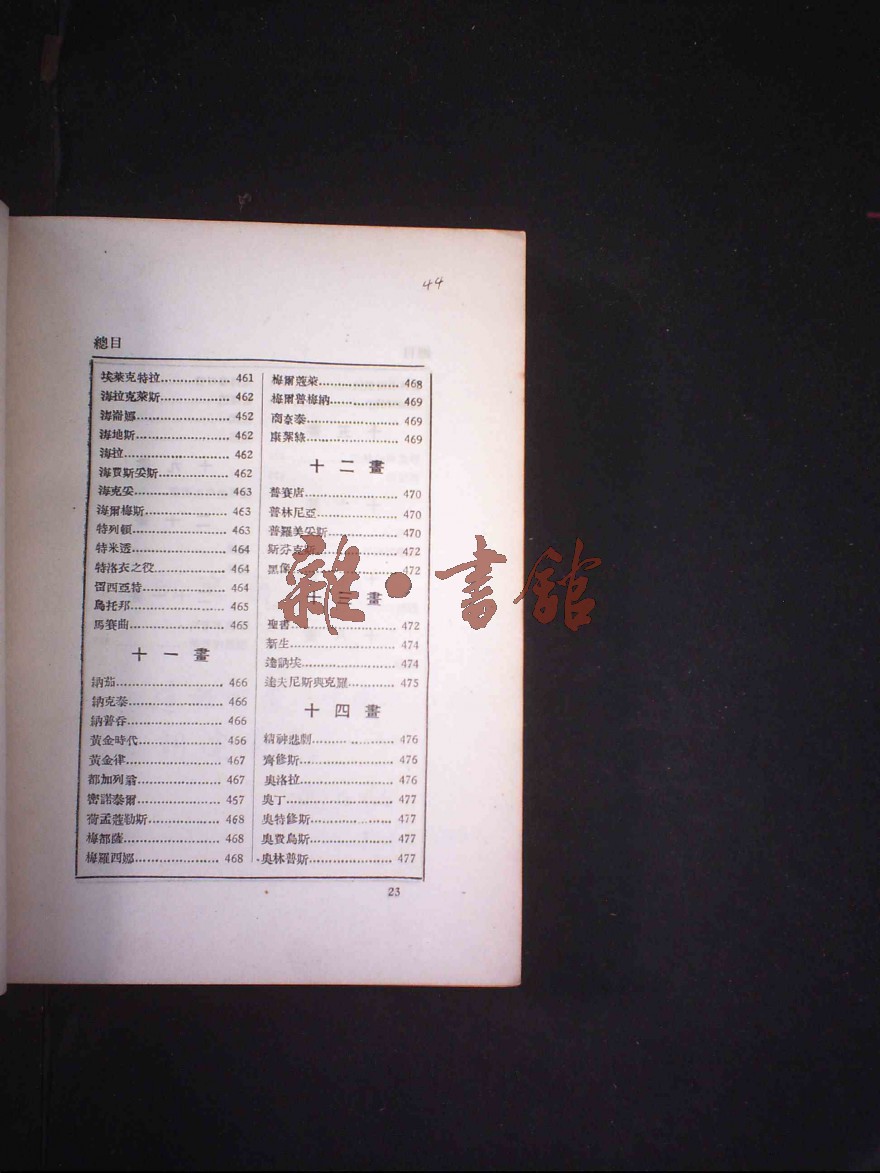 44
總目
埃萊克特拉.................. 461
海拉克萊斯.................. 462
海崙娜........................ 462
海地斯........................ 462
海拉........................... 462
海賈斯妥斯.................. 462
海克妥........................ 463
海爾梅斯..................... 463
特列頓........................ 463
特米透........................ 464
特洛衣之役.................. 464
雷西亞特..................... 464
烏托邦........................ 465
馬賽曲........................ 465
十一畫
納茄........................... 466
納克泰........................ 466
納普吞........................ 466
黃金時代..................... 466
黃金律........................ 467
都加列翁..................... 467
密諾泰爾..................... 467
荷孟蔻勒斯.................. 468
梅都薩........................ 468
梅羅西娜..................... 468
梅爾蔻萊..................... 468
梅爾普梅納.................. 469
商泰.......................... 469
康葉綠........................ 469
十二畫
普賽唐........................ 470
普林尼亞..................... 470
普羅美妥斯.................. 470
斯芬克斯..................... 472
黑 472
十三畫
聖書........................... 472
新生........................... 474
達訥埃........................ 474
達夫尼斯與克羅............ 475
十四畫
精神悲劇..................... 476
齊修斯........................ 476
奧洛拉........................ 476
奧丁........................... 477
奧特修斯..................... 477
奧費烏斯..................... 477
奧林普斯..................... 477
23
雜·書館